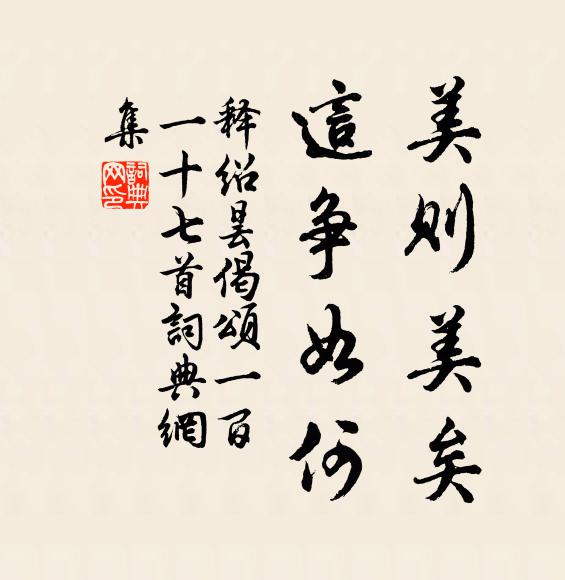 美则美矣
這争如何
释绍昙偈頌一百
一十七首詞典網
集
詞典
网印